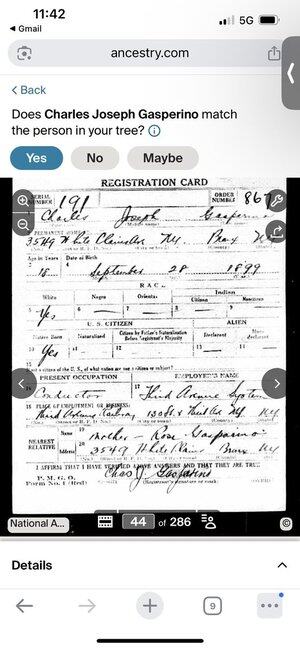 11:42
5G
◀ Gmail
ancestry.com
< Back
Does Charles Joseph Gasperino match
the person in your tree?
Yes
No
Maybe
REGISTRATION CARD
SERIAL NUMBER 191
ORDER NUMBER
Charles Joseph Gasperino
PERMANENT HOME
3549 White Plains Rd NY. Bronx NY
Age in Years
Date of Birth
18
September 28 1899
RACE
White
Negro
Oriental
Indian
Citizen
Noncitizen
5 Yes
6
7
8
9
U. S. CITIZEN
ALIEN
Native Born
Naturalized
Citizen by Father's Naturalization
Before Registrant's Majority
Declarant
Non-declarant
10 Yes
11
12
13
14
15 If not a citizen of the U. S., of what nation are you a citizen or subject?
PRESENT OCCUPATION
EMPLOYER'S NAME
Conductor
Third Avenue System
18 PLACE OF EMPLOYMENT OR BUSINESS:
Third Avenue Railway
Third Ave NY. NY
NEAREST RELATIVE
Name
19
mother - Rose Gasparino
Address
20
3549 White Plains Bronx NY
I AFFIRM THAT I HAVE VERIFIED ABOVE ANSWERS AND THAT THEY ARE TRUE
P. M. G. O.
Form No. 1 (Red)
Chas J. Gasparino
(Registrant's signature or mark)
(OVER)
National A...
44 of 286
©
Details
9